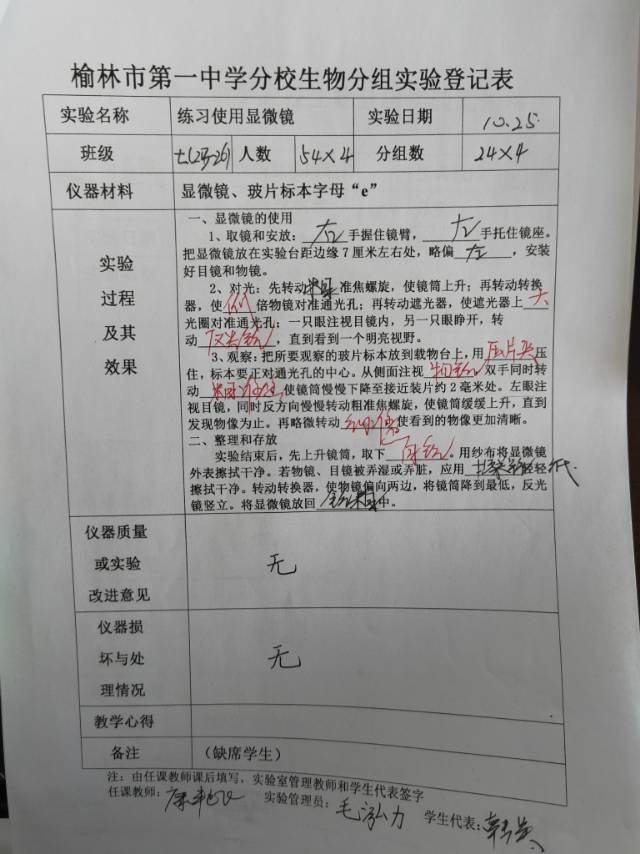 榆林市第一中学分校生物分组实验登记表
实验名称 练习使用显微镜 实验日期 10.25
班级 七(23-26) 人数 54×4 分组数 24×4
仪器材料 显微镜、玻片标本字母“e”
实验
过程
及其
效果
一、显微镜的使用
1、取镜和安放：右手握住镜臂，左手托住镜座。
把显微镜放在实验台距边缘7厘米左右处，略偏左，安装
好目镜和物镜。
2、对光：先转动粗准焦螺旋，使镜筒上升；再转动转换
器，使倍物镜对准通光孔；再转动遮光器，使遮光器上大
光圈对准通光孔；一只眼注视目镜内，另一只眼睁开，转
动反光镜，直到看到一个明亮视野。
3、观察：把所要观察的玻片标本放到载物台上，用压片夹压
住，标本要正对通光孔的中心。从侧面注视物镜双手同时转
动使镜筒慢慢下降至接近装片约2毫米处。左眼注
视目镜，同时反方向慢慢转动粗准焦螺旋，使镜筒缓缓上升，直到
发现物像为止。再略微转动使看到的物像更加清晰。
二、整理和存放
实验结束后，先上升镜筒，取下。用纱布将显微镜
外表擦拭干净。若物镜、目镜被弄湿或弄脏，应用擦镜纸轻轻
擦拭干净。转动转换器，使物镜偏向两边，将镜筒降到最低，反光
镜竖立。将显微镜放回镜箱中。
仪器质量
或实验
改进意见
无
仪器损
坏与处
理情况
无
教学心得
备注 （缺席学生）
注：由任课教师课后填写，实验室管理教师和学生代表签字
任课教师： 实验管理员：毛泓力 学生代表：